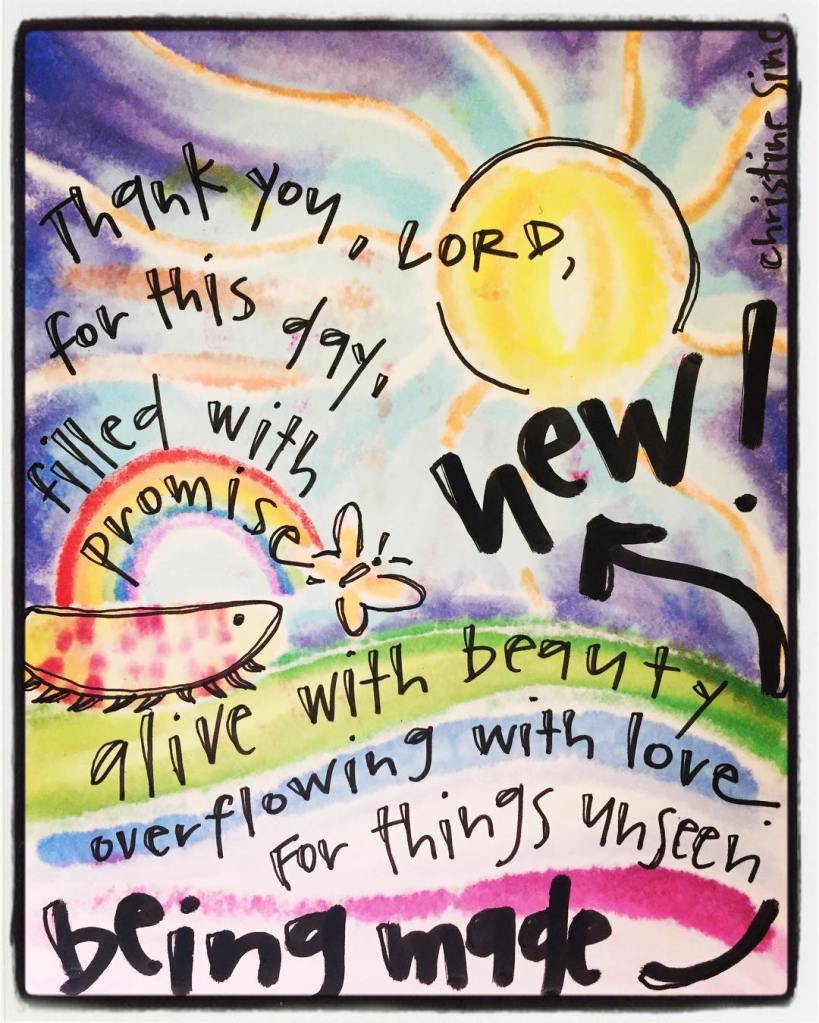 Thank you, LORD,
for this day,
filled with
promise
alive with beauty
overflowing with love
For things unseen
being made
new!
christine